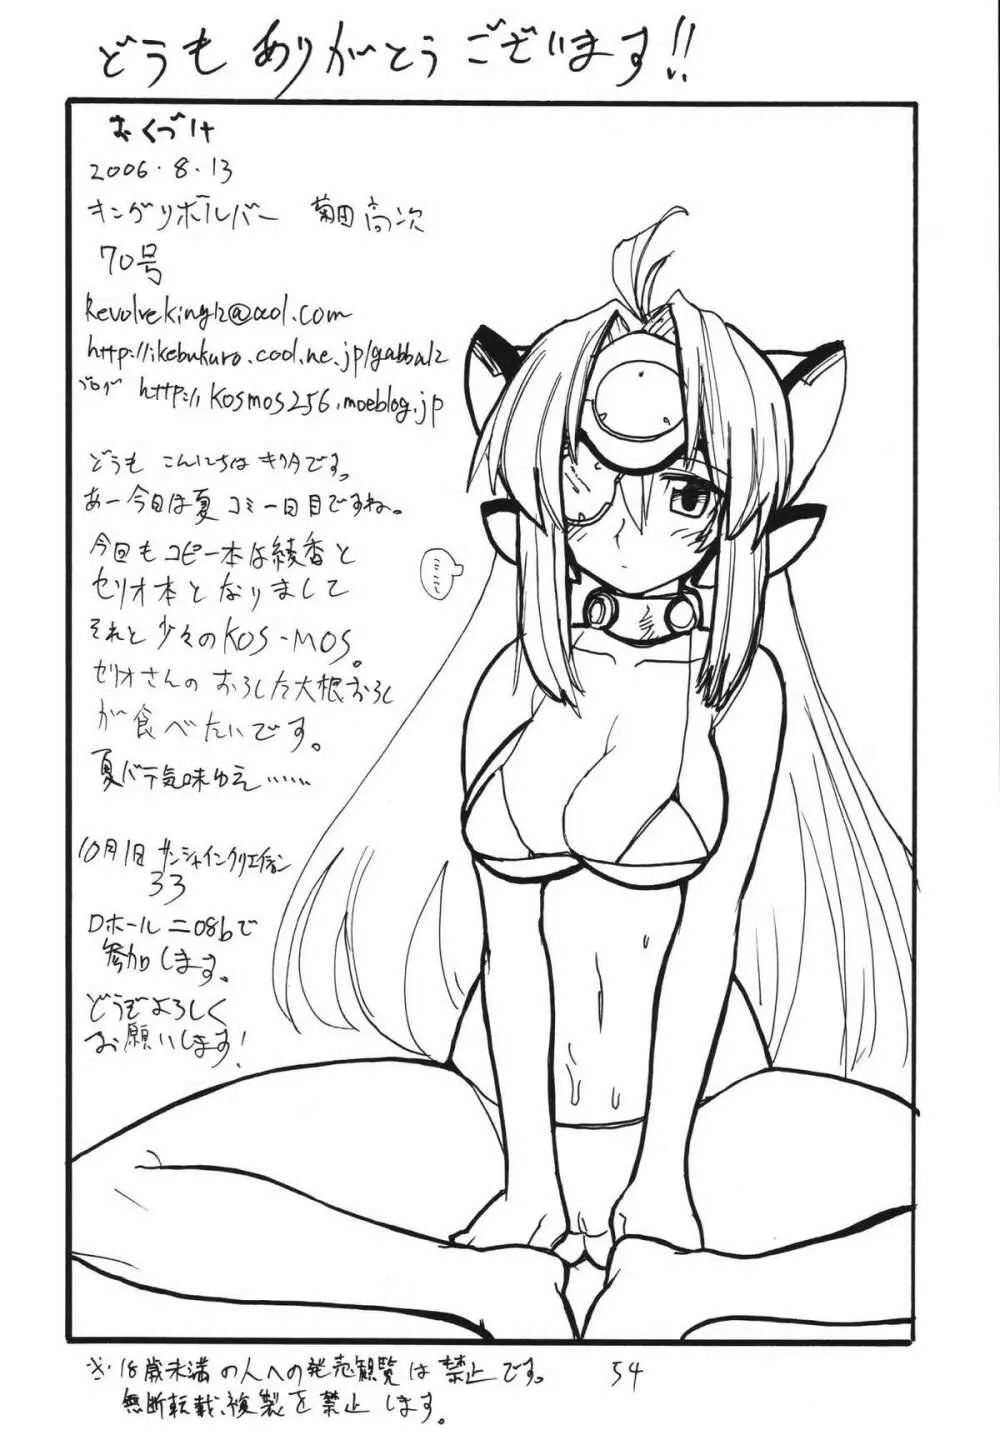 どうも ありがとう ございます!!
おくづけ
2006.8.13
キングリボルバー 菊田高次
70号
Revolveking12@aol.com
http://ikebukuro.cool.ne.jp/gabbal2
ブログ http://kosmos256.moeblog.jp
どうも こんにちは キクタです。
あー今日は夏コミ一日目ですね。
今回もコピー本は綾香と
セリオ本となりまして
それと少々のKOS-MOS。
セリオさんのおろした大根おろし
が食べたいです。
夏バテ気味ゆえ……
10月1日 サンシャインクリエイション
33
Dホール ニ08bで
参加します。
どうぞよろしく
お願いします!
※・18歳未満の人への発売観覧は禁止です。
54
無断転載、複製を禁止します。